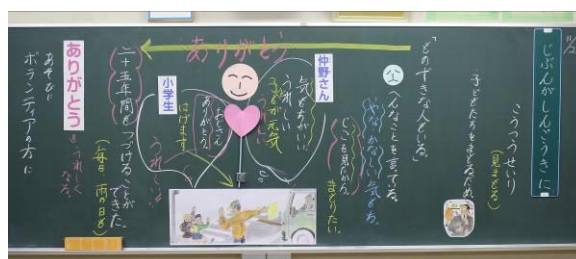 じぶんがしんごうきに
こうつうせいり
(見まもる)
子どもたちをまもるため。
「ものずきな人もいる。」
へんなことを言っている。
やな、かなしい気もち。
じこを見たから。
まもりたい。
仲野さん
気もちがいい
うれしい
子どもが元気
ありがとう
小学生
おじさん
ありがとう。
はげます
うれしい
二十五年間も、つづけることが
できた。
(毎日、雨の日も)
ありがとう
うれしく
なる。
ボランティアの方に